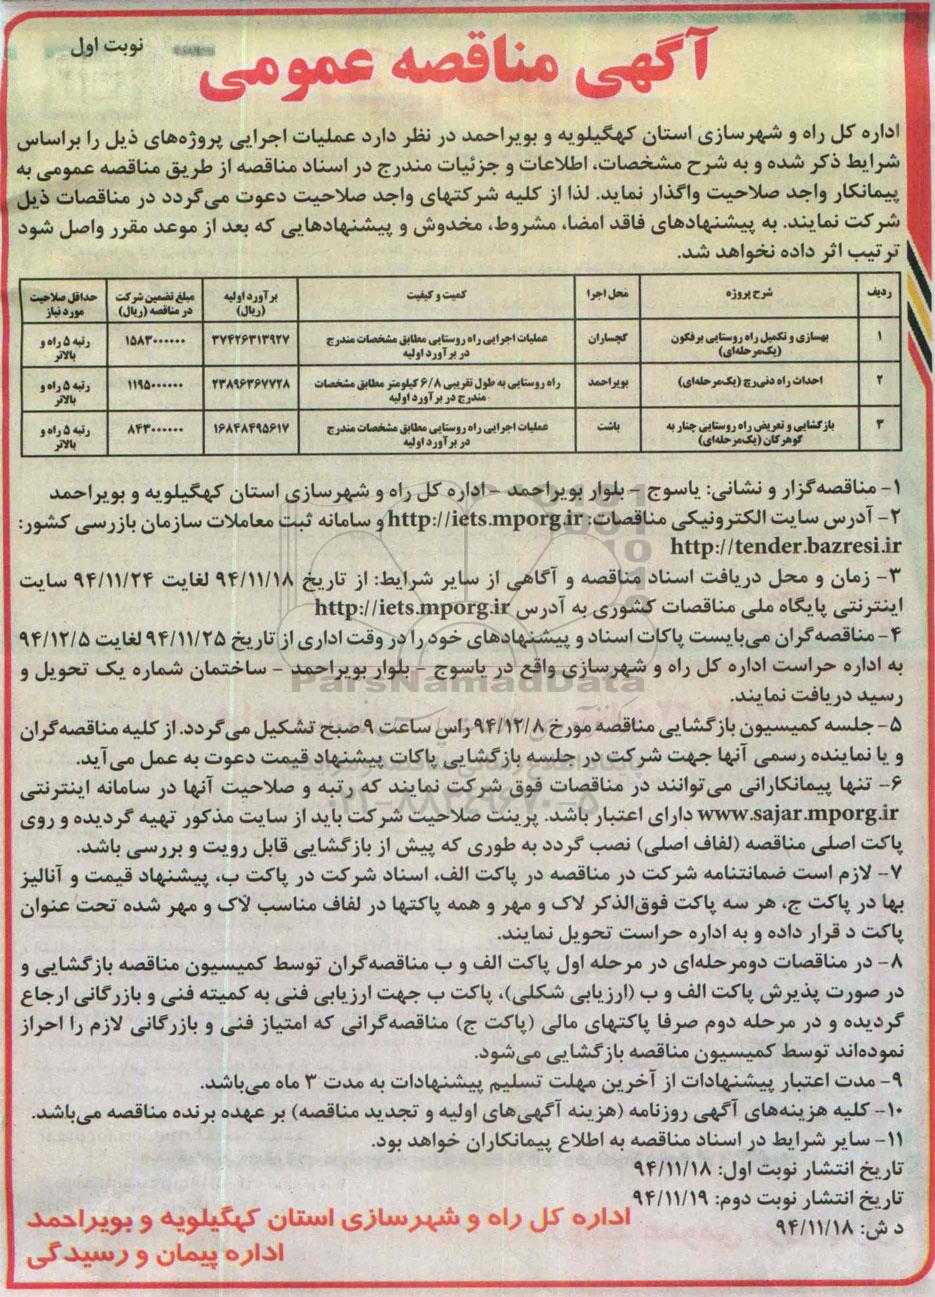 نوبت اول
آگهی مناقصه عمومی
اداره کل راه و شهرسازی استان کهگیلویه و بویراحمد در نظر دارد عملیات اجرایی پروژه‌های ذیل را براساس
شرایط ذکر شده و به شرح مشخصات، اطلاعات و جزئیات مندرج در اسناد مناقصه از طریق مناقصه عمومی به
پیمانکار واجد صلاحیت واگذار نماید. لذا از کلیه شرکتهای واجد صلاحیت دعوت می‌گردد در مناقصات ذیل
شرکت نمایند. به پیشنهادهای فاقد امضا، مشروط، مخدوش و پیشنهادهایی که بعد از موعد مقرر واصل شود
ترتیب اثر داده نخواهد شد.
ردیف شرح پروژه محل اجرا کمیت و کیفیت برآورد اولیه (ریال) مبلغ تضمین شرکت در مناقصه (ریال) حداقل صلاحیت مورد نیاز
۱ بهسازی و تکمیل راه روستایی برفکون (یک‌مرحله‌ای) گچساران عملیات اجرایی راه روستایی مطابق مشخصات مندرج در برآورد اولیه ۳۷۴۲۶۳۱۳۹۲۷ ۱۵۸۳۰۰۰۰۰۰ رتبه ۵ راه و بالاتر
۲ احداث راه دنی‌رچ (یک‌مرحله‌ای) بویراحمد راه روستایی به طول تقریبی ۶/۸ کیلومتر مطابق مشخصات مندرج در برآورد اولیه ۲۳۸۹۶۳۶۷۷۲۸ ۱۱۹۵۰۰۰۰۰۰ رتبه ۵ راه و بالاتر
۳ بازگشایی و تعریض راه روستایی چنار به گوهرکان (یک‌مرحله‌ای) باشت عملیات اجرایی راه روستایی مطابق مشخصات مندرج در برآورد اولیه ۱۶۸۴۸۴۹۵۶۱۷ ۸۴۳۰۰۰۰۰۰ رتبه ۵ راه و بالاتر
۱- مناقصه‌گزار و نشانی: یاسوج - بلوار بویراحمد - اداره کل راه و شهرسازی استان کهگیلویه و بویراحمد
۲- آدرس سایت الکترونیکی مناقصات: http://iets.mporg.ir و سامانه ثبت معاملات سازمان بازرسی کشور:
http://tender.bazresi.ir
۳- زمان و محل دریافت اسناد مناقصه و آگاهی از سایر شرایط: از تاریخ ۹۴/۱۱/۱۸ لغایت ۹۴/۱۱/۲۴ سایت
اینترنتی پایگاه ملی مناقصات کشوری به آدرس http://iets.mporg.ir
۴- مناقصه‌گران می‌بایست پاکات اسناد و پیشنهادهای خود را در وقت اداری از تاریخ ۹۴/۱۱/۲۵ لغایت ۹۴/۱۲/۵
به اداره حراست اداره کل راه و شهرسازی واقع در یاسوج - بلوار بویراحمد - ساختمان شماره یک تحویل و
رسید دریافت نمایند.
ParsNamadData
۵- جلسه کمیسیون بازگشایی مناقصه مورخ ۹۴/۱۲/۸ راس ساعت ۹ صبح تشکیل می‌گردد. از کلیه مناقصه‌گران
و یا نماینده رسمی آنها جهت شرکت در جلسه بازگشایی پاکات پیشنهاد قیمت دعوت به عمل می‌آید.
۶- تنها پیمانکارانی می‌توانند در مناقصات فوق شرکت نمایند که رتبه و صلاحیت آنها در سامانه اینترنتی
www.sajar.mporg.ir دارای اعتبار باشد. پرینت صلاحیت شرکت باید از سایت مذکور تهیه گردیده و روی
پاکت اصلی مناقصه (لفاف اصلی) نصب گردد به طوری که پیش از بازگشایی قابل رویت و بررسی باشد.
۷- لازم است ضمانتنامه شرکت در مناقصه در پاکت الف، اسناد شرکت در پاکت ب، پیشنهاد قیمت و آنالیز
بها در پاکت ج، هر سه پاکت فوق‌الذکر لاک و مهر و همه پاکتها در لفاف مناسب لاک و مهر شده تحت عنوان
پاکت د قرار داده و به اداره حراست تحویل نمایند.
۸- در مناقصات دومرحله‌ای در مرحله اول پاکت الف و ب مناقصه‌گران توسط کمیسیون مناقصه بازگشایی و
در صورت پذیرش پاکت الف و ب (ارزیابی شکلی)، پاکت ب جهت ارزیابی فنی به کمیته فنی و بازرگانی ارجاع
گردیده و در مرحله دوم صرفا پاکتهای مالی (پاکت ج) مناقصه‌گرانی که امتیاز فنی و بازرگانی لازم را احراز
نموده‌اند توسط کمیسیون مناقصه بازگشایی می‌شود.
۹- مدت اعتبار پیشنهادات از آخرین مهلت تسلیم پیشنهادات به مدت ۳ ماه می‌باشد.
۱۰- کلیه هزینه‌های آگهی روزنامه (هزینه آگهی‌های اولیه و تجدید مناقصه) بر عهده برنده مناقصه می‌باشد.
۱۱- سایر شرایط در اسناد مناقصه به اطلاع پیمانکاران خواهد بود.
تاریخ انتشار نوبت اول: ۹۴/۱۱/۱۸
تاریخ انتشار نوبت دوم: ۹۴/۱۱/۱۹
د ش: ۹۴/۱۱/۱۸
اداره کل راه و شهرسازی استان کهگیلویه و بویراحمد
اداره پیمان و رسیدگی